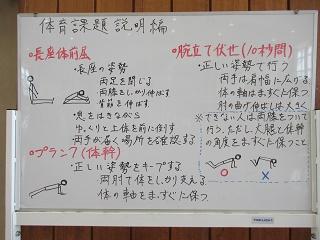 体育課題説明編
●長座体前屈
・長座の姿勢
両足を閉じる
両膝をしっかり伸ばす
背筋を伸ばす
・息をはきながら
ゆっくりと上体を前に倒す
両手が届く場所を確認する
●プランク(体幹)
・正しい姿勢をキープする
両肘で体をしっかり支える
体の軸をまっすぐに保つ
●腕立て伏せ(10秒間)
・正しい姿勢で行う
両手は肩幅に広げる
体の軸はまっすぐに保つ
肘の曲げ伸ばしは大きく
※できない人は両膝をついて
行う。ただし、大腿と体幹
の角度をまっすぐに保つこと
○ ×